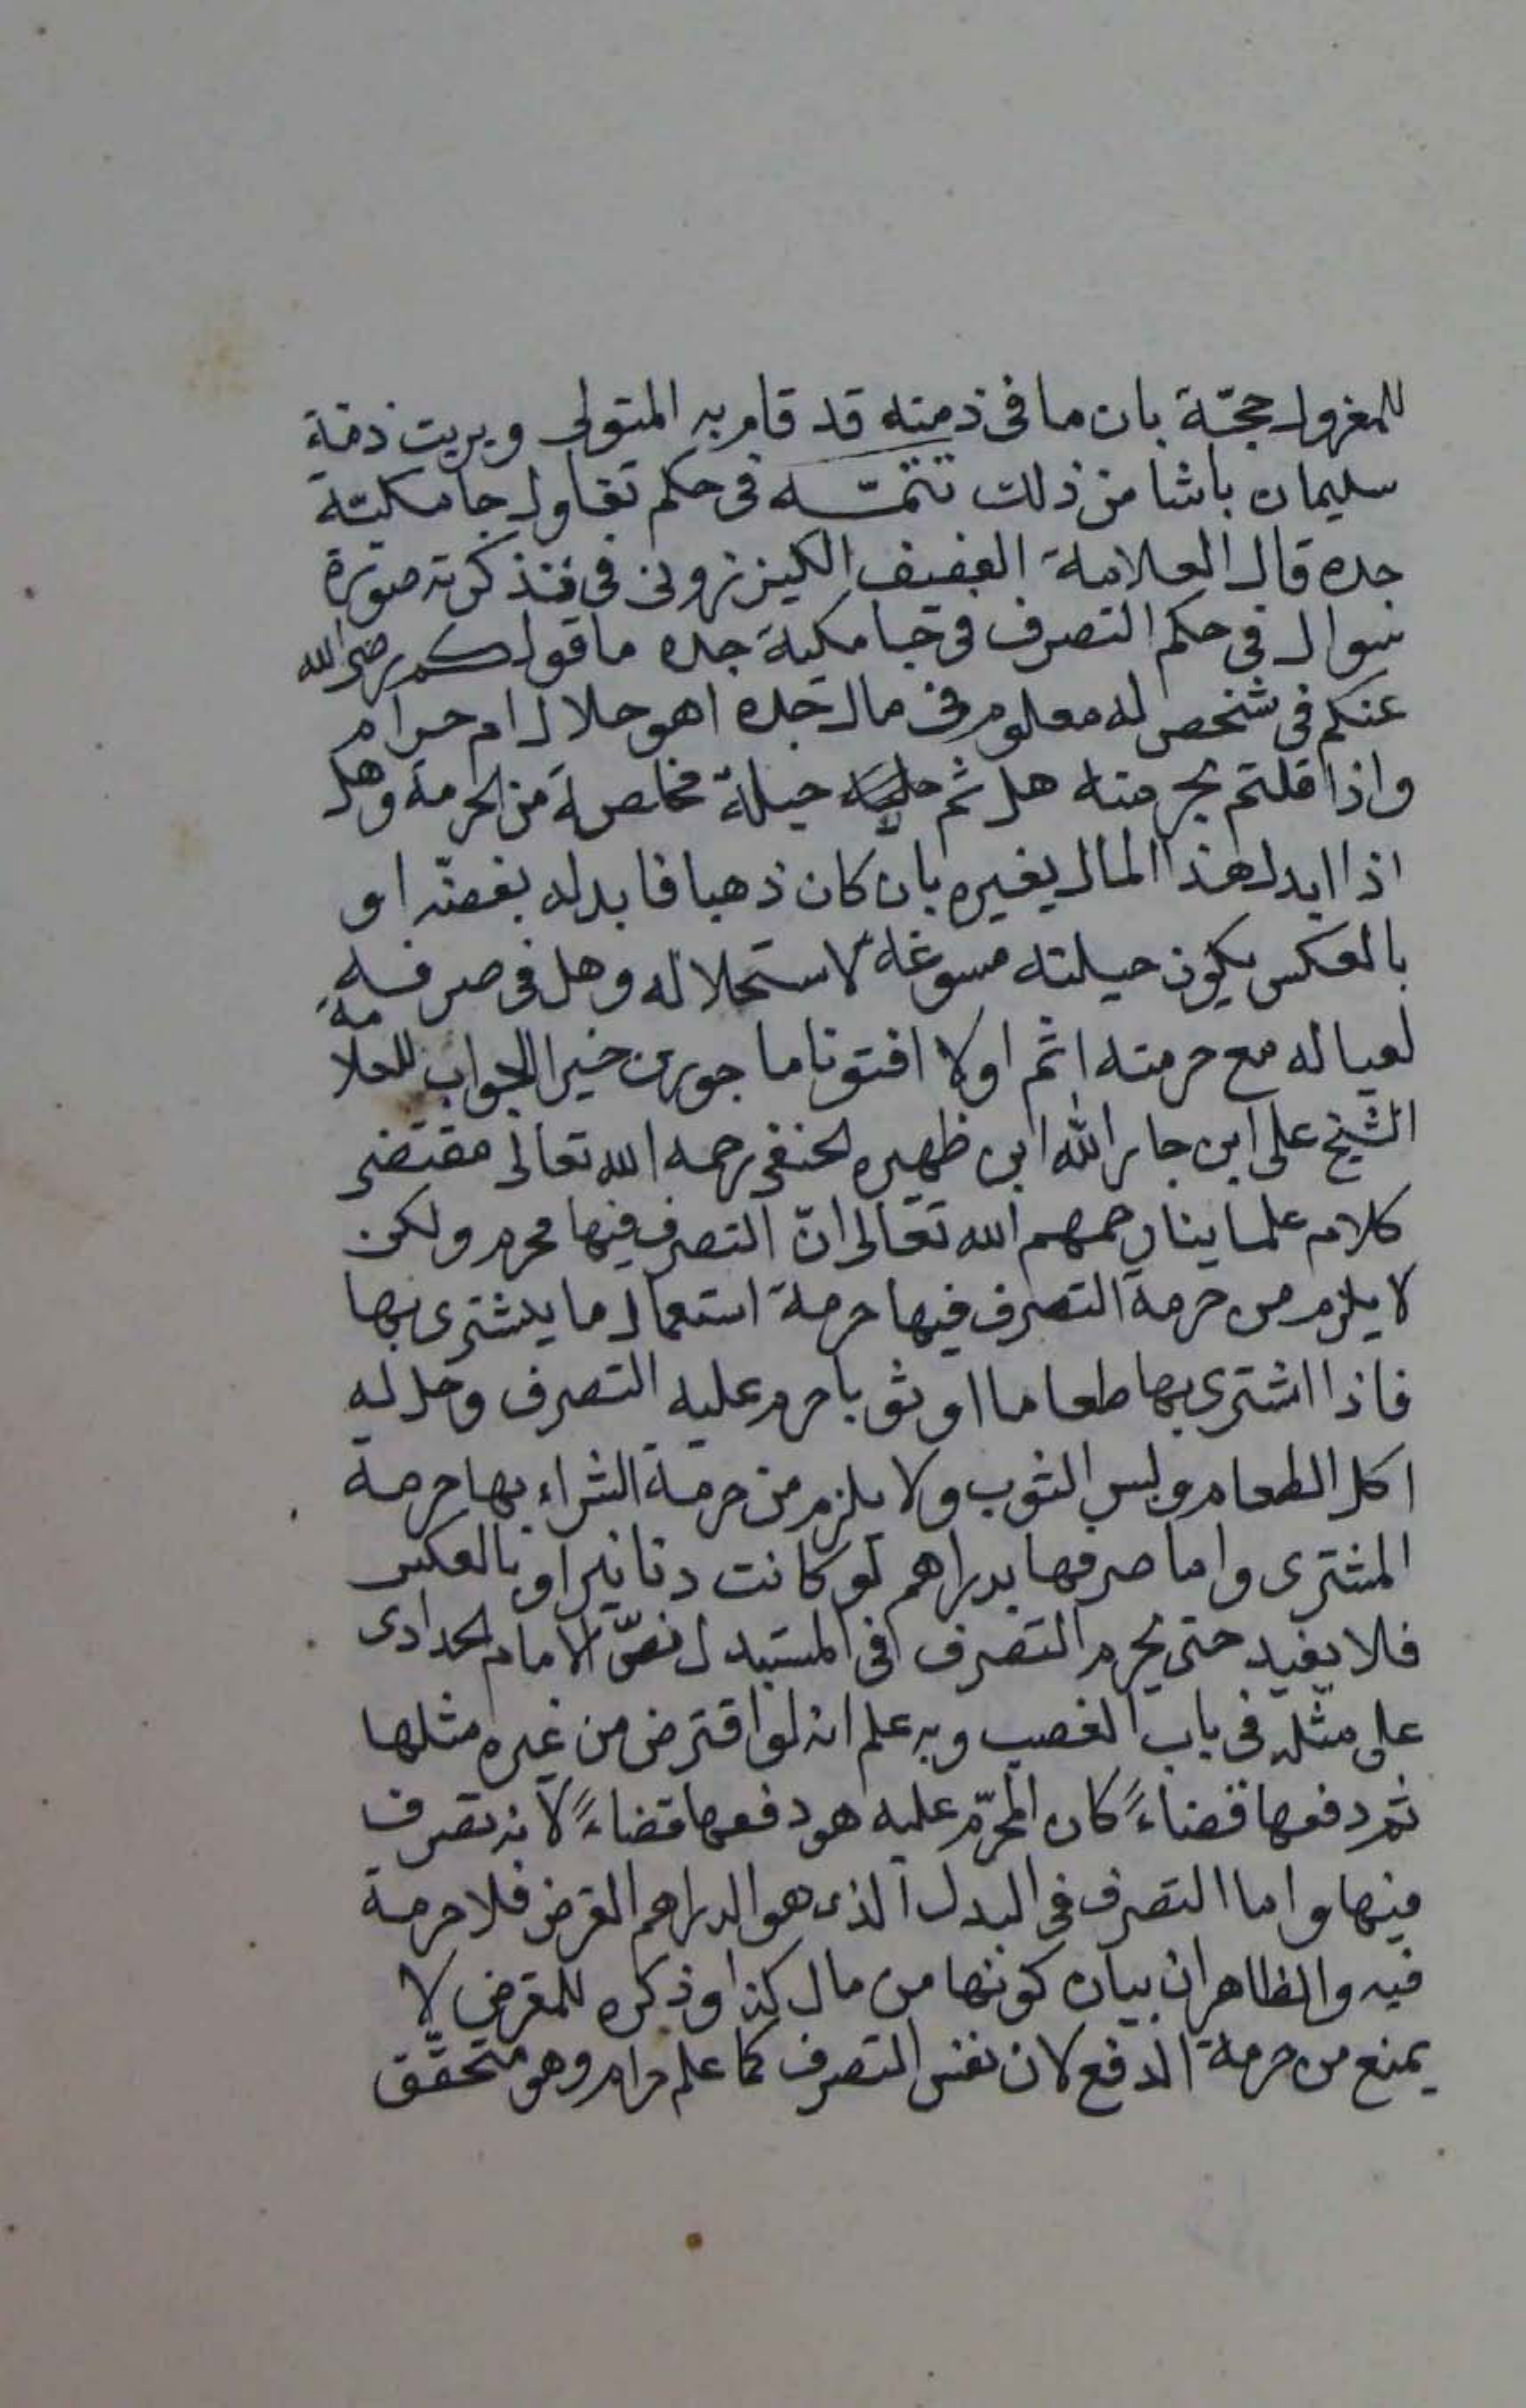 للمغرول حجّة بان ما فى ذمته قد قام به المتولى وبريت ذمة
سليمان باشا من ذلك تتمّـــه فى حكم تعاول جامكيّة
جده قال العلامة العفيف الكيزرونى فى تذكرته صورة
سوال فى حكم التصرف فى جامكية جده ما قولكم رضى الله
عنكم فى شخص له معلوم فى مال جده اهو حلال ام حرام
واذا قلتم بحرمته هل ثم حيلة مخلصة من الحرمة وهل
اذا ابدل هذا المال بغيره بان كان ذهبا فابدله بفضّه او
بالعكس يكون حيلته مسوغة لاستحلاله وهل فى صرفه
لعياله مع حرمته اثم اولا افتونا ماجورين خيرا الجواب للعلامة
الشيخ على ابن جار الله ابن ظهيره الحنفى رحمه الله تعالى مقتضى
كلام علماينا رحمهم الله تعالى انّ التصرف فيها محرم ولكن
لا يلزم من حرمة التصرف فيها حرمة استعمال ما يشترى بها
فاذا اشترى بها طعاما او ثوبا حرم عليه التصرف وحل له
اكل الطعام ولبس الثوب ولا يلزم من حرمة الشراء بها حرمة
المشترى واما صرفها بدراهم لو كانت دنانير او بالعكس
فلا يفيد حتى يحرم التصرف فى المستبدل نصّ الامام الحدادى
على مثله فى باب الغصب وبه علم انه لو اقترض من غيره مثلها
ثم دفعها قضاءً كان المحرّم عليه هو دفعها قضاءً لانه تصرف
فيها واما التصرف فى البدل الذى هو الدراهم القرض فلا حرمة
فيه والظاهر ان بيان كونها من مال كذا وذكره للمقرض لا
يمنع من حرمة الدفع لان نفس التصرف كما علم حرام وهو متحقّق